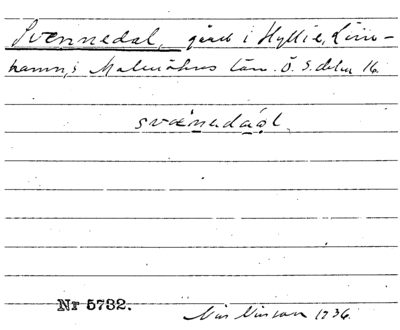 Svennedal, gård i Hyllie, Lim-
hamn, Malmöhus län. Ö. S. delen 16.
svænedáol.
Nr 5732.
Nils Nilsson 1936.